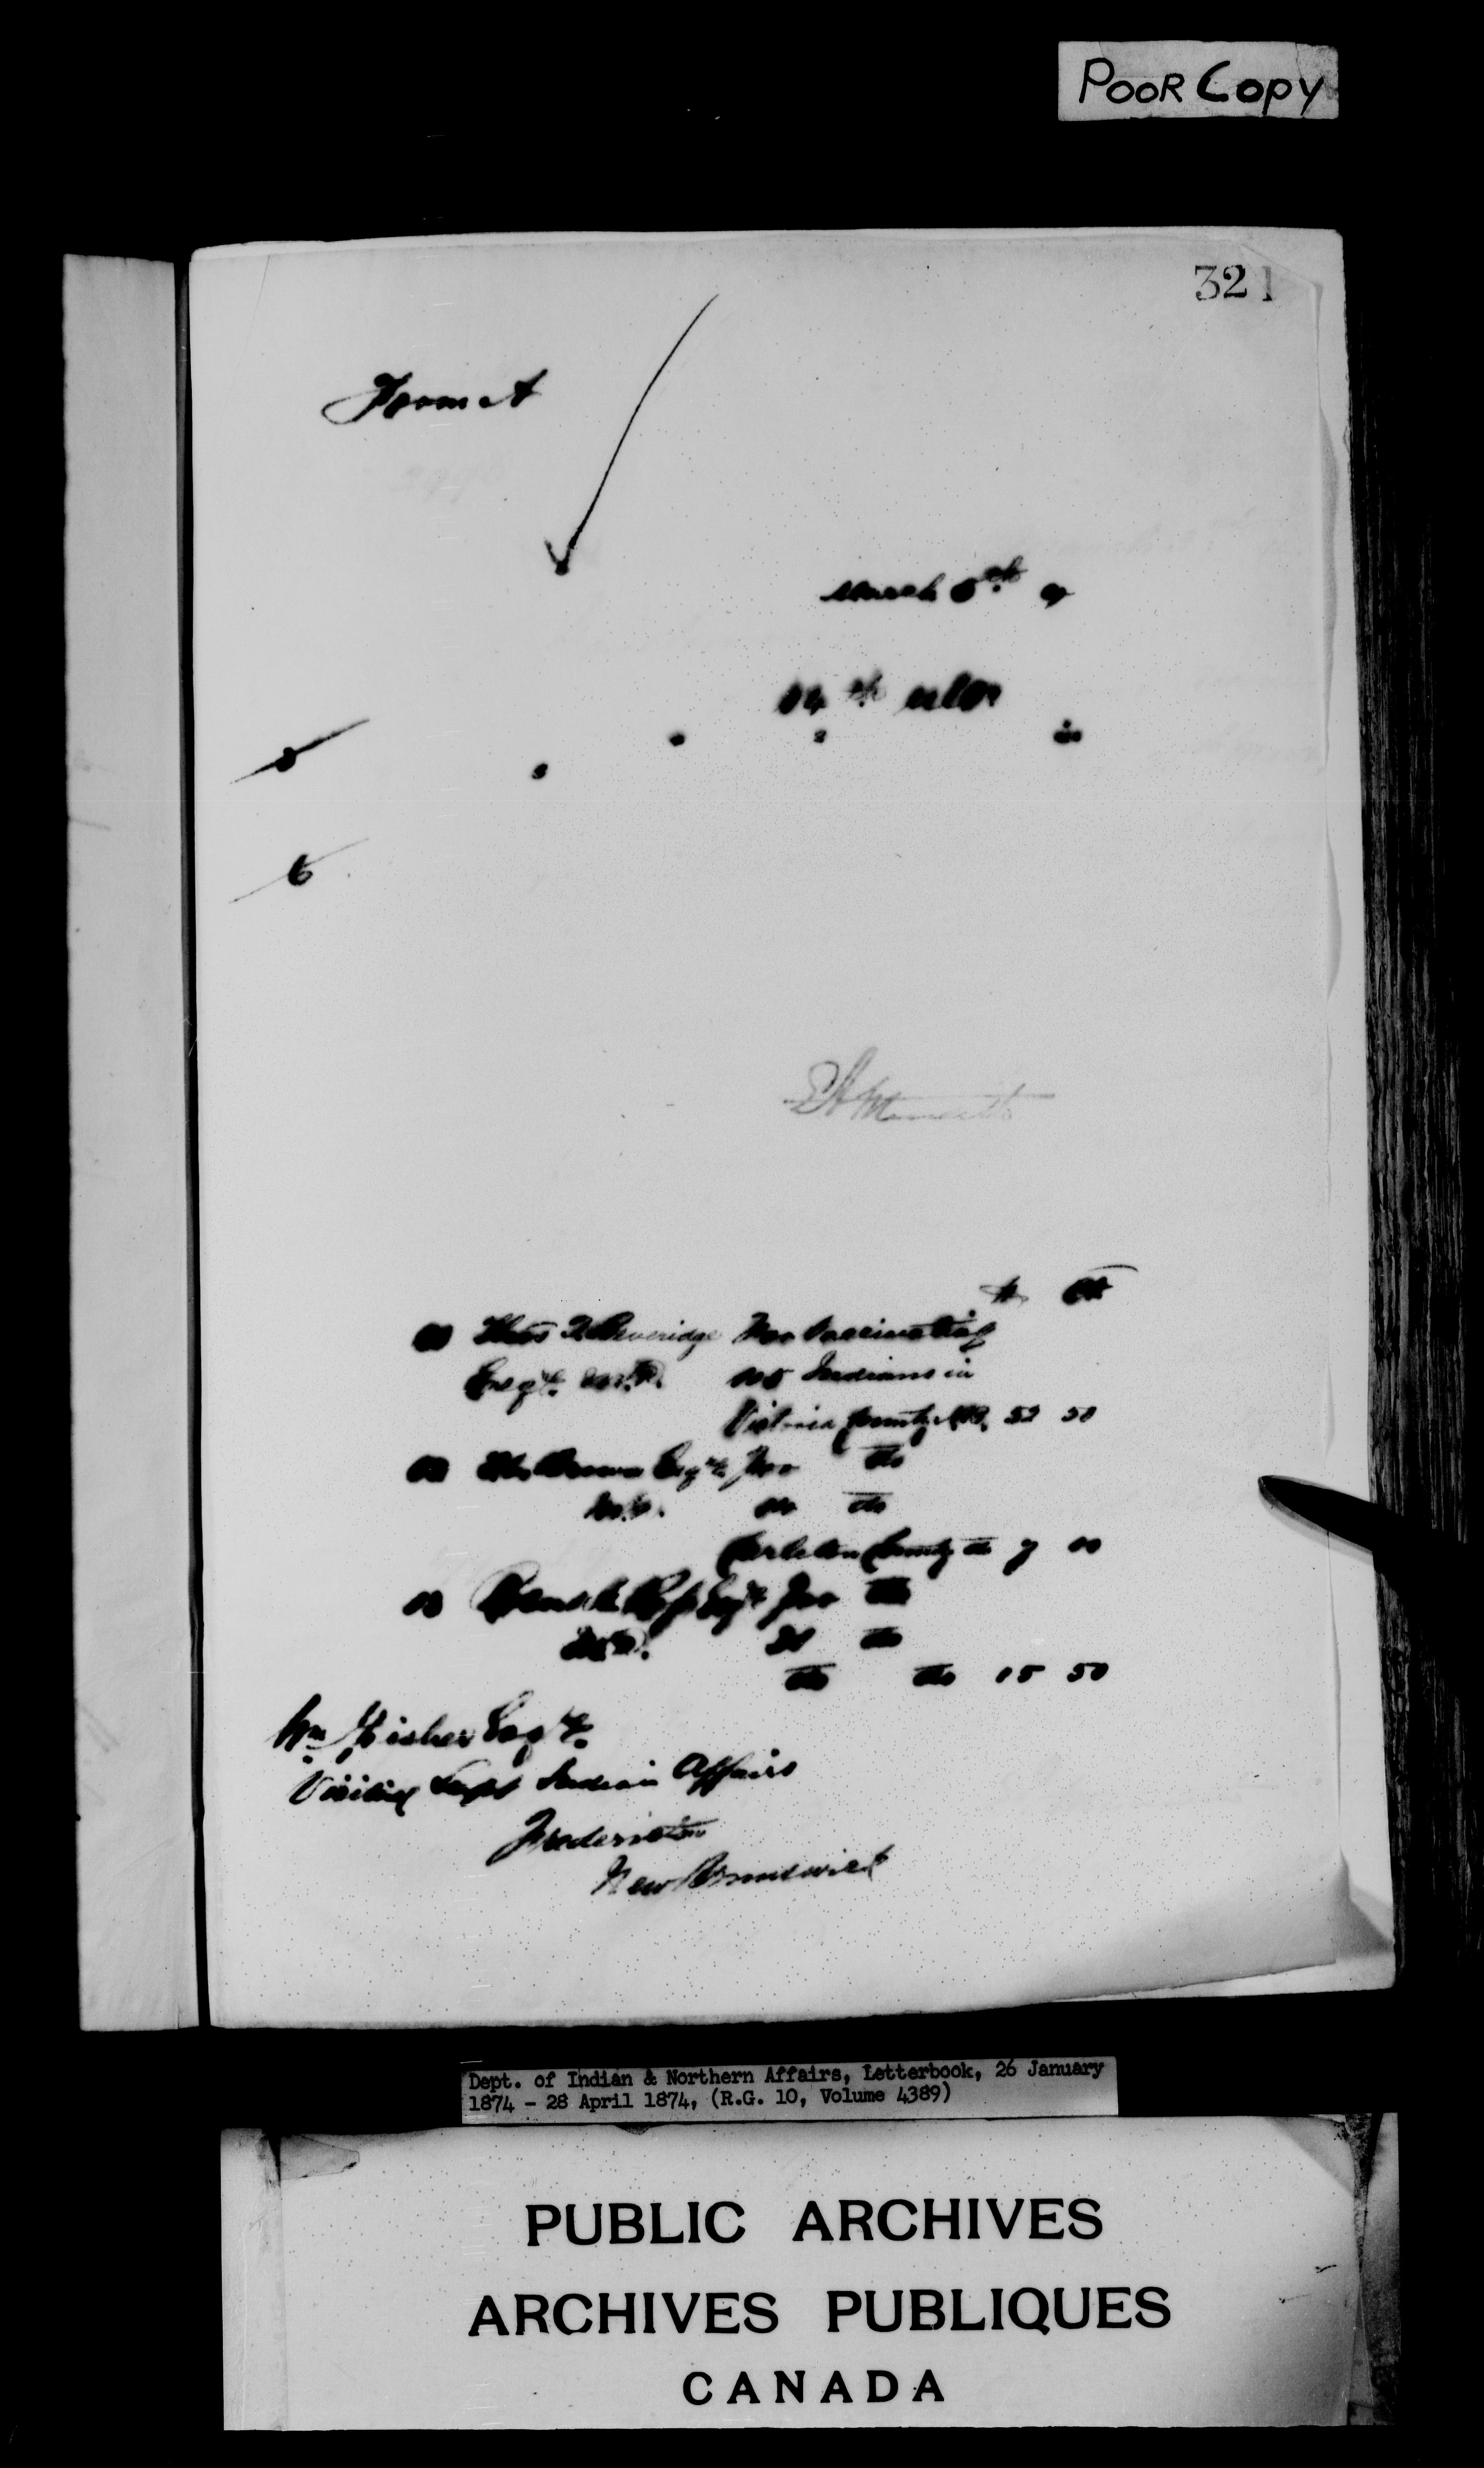 POOR COPY
321
Form A
March 5th
th ulto
6
$ Cts
Beveridge For Vaccinating
Esqre M.D. 105 Indians in
Victoria County N.B. 52 50
Brown Esqre For do
M.D. do
Carleton County do 7 00
Esqre For do
M.D. 31 do
do do 15 50
Wm Fisher Esqre
Visiting Supt Indian Affairs
Fredericton
New Brunswick
Dept. of Indian & Northern Affairs, Letterbook, 26 January
1874 - 28 April 1874, (R.G. 10, Volume 4389)
PUBLIC ARCHIVES
ARCHIVES PUBLIQUES
CANADA